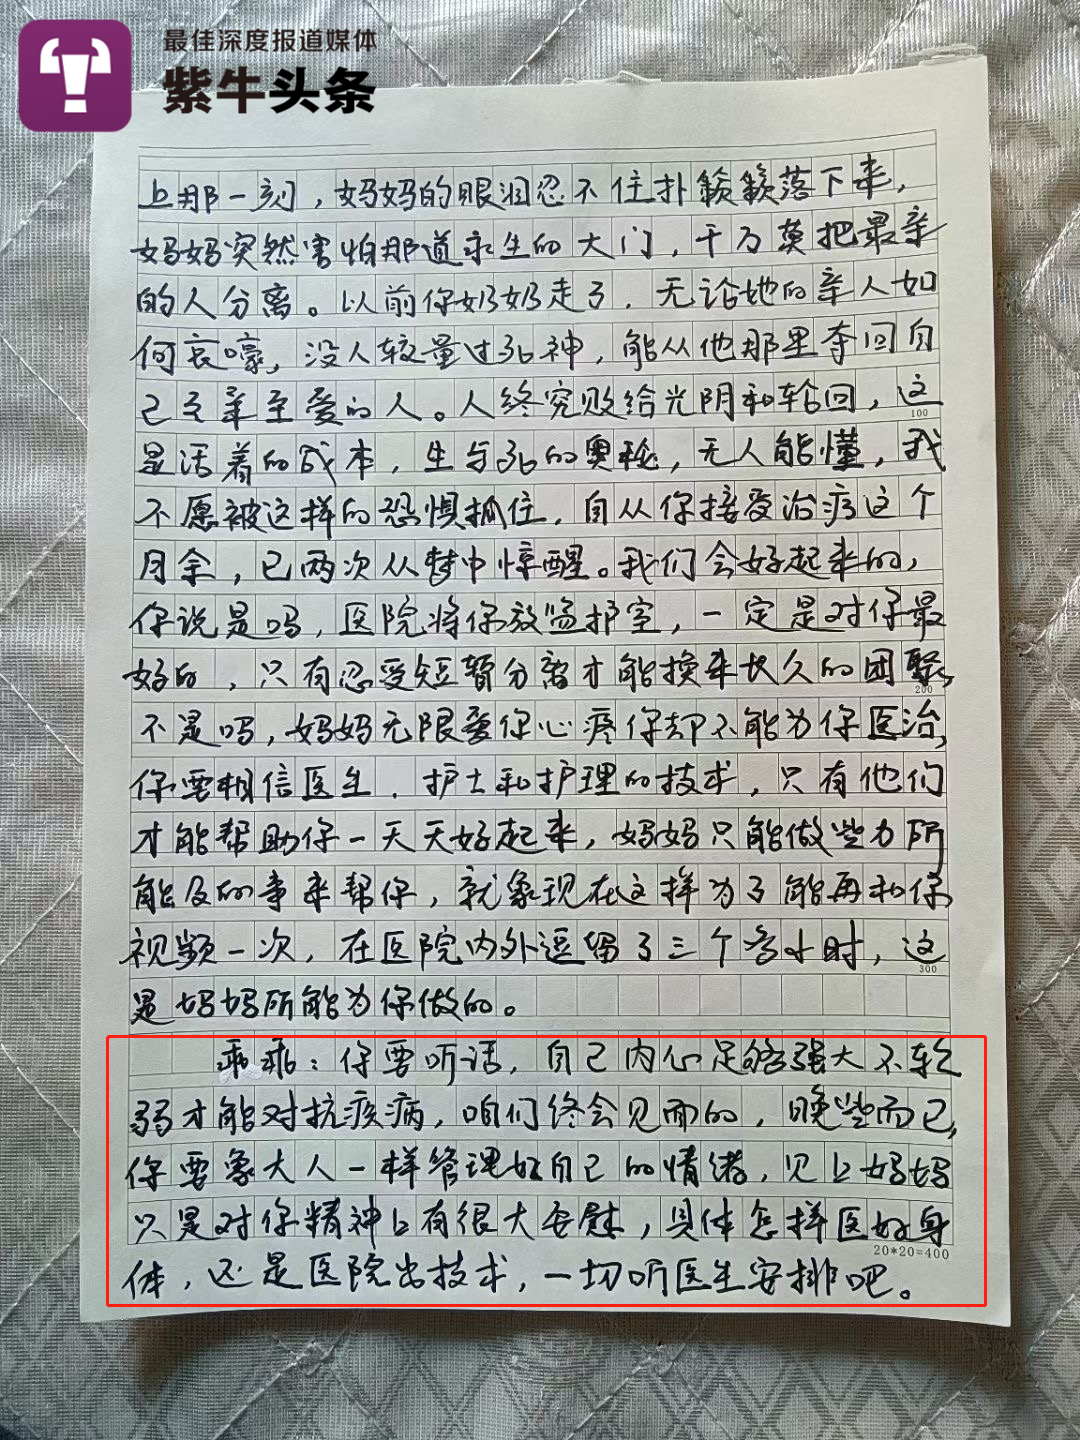 最佳深度报道媒体
紫牛头条
上那一刻，妈妈的眼泪忍不住扑簌簌落下来，
妈妈突然害怕那道求生的大门，千万莫把最亲
的人分离。以前你奶奶走了，无论她的亲人如
何哀嚎，没人较量过死神，能从他那里夺回自
己至亲至爱的人。人终究败给光阴和轮回，这
100
是活着的成本，生与死的奥秘，无人能懂，我
不愿被这样的恐惧抓住，自从你接受治病这个
月余，已两次从梦中惊醒。我们会好起来的，
你说是吗，医院将你放监护室，一定是对你最
好的，只有忍受短暂分离才能换来长久的团聚，
200
不是吗，妈妈无限爱你心疼你却不能为你医治，
你要相信医生、护士和护理的技术，只有他们
才能帮助你一天天好起来，妈妈只能做些力所
能及的事来帮你，就象现在这样为了能再和你
视频一次，在医院内外逗留了三个多小时，这
300
是妈妈所能为你做的。
乖乖：你要听话，自己内心足够强大不软
弱才能对抗疾病，咱们终会见面的，晚些而已，
你要象大人一样管理好自己的情绪，见上妈妈
只是对你精神上有很大安慰，具体怎样医好身
20*20=400
体，还是医院出技术，一切听医生安排吧。